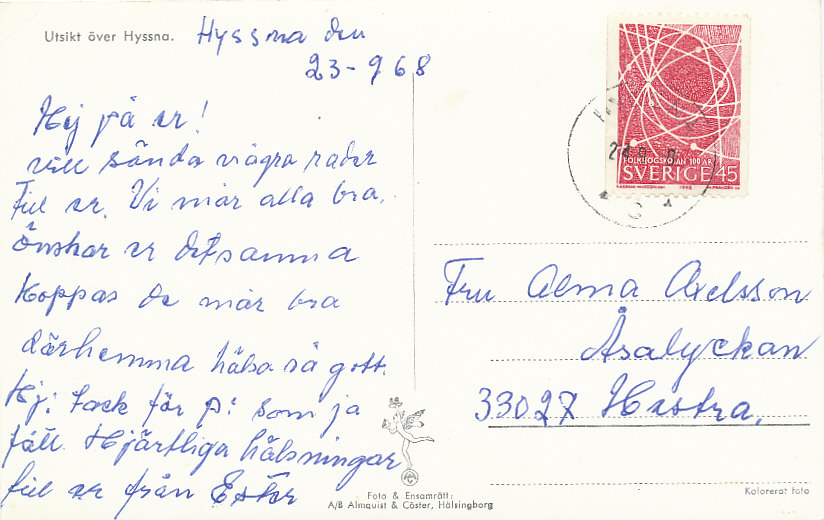 Utsikt över Hyssna.
Hyssna den
23-9 68
Hej på er!
vill sända några rader
Till er. Vi mår alla bra.
Önskar er detsamma
Hoppas de mår bra
därhemma hälsa så gott.
Hj: Tack för p: som ja
fåll. Hjärtliga hälsningar
till er från Ester
FOLKHÖGSKOLAN 100 ÅR
SVERIGE 45
1968
Fru Alma Axelsson
Åsalyckan
33027 Hestra.
Foto & Ensamrätt:
A/B Almquist & Cöster, Hälsingborg
Kolorerat foto